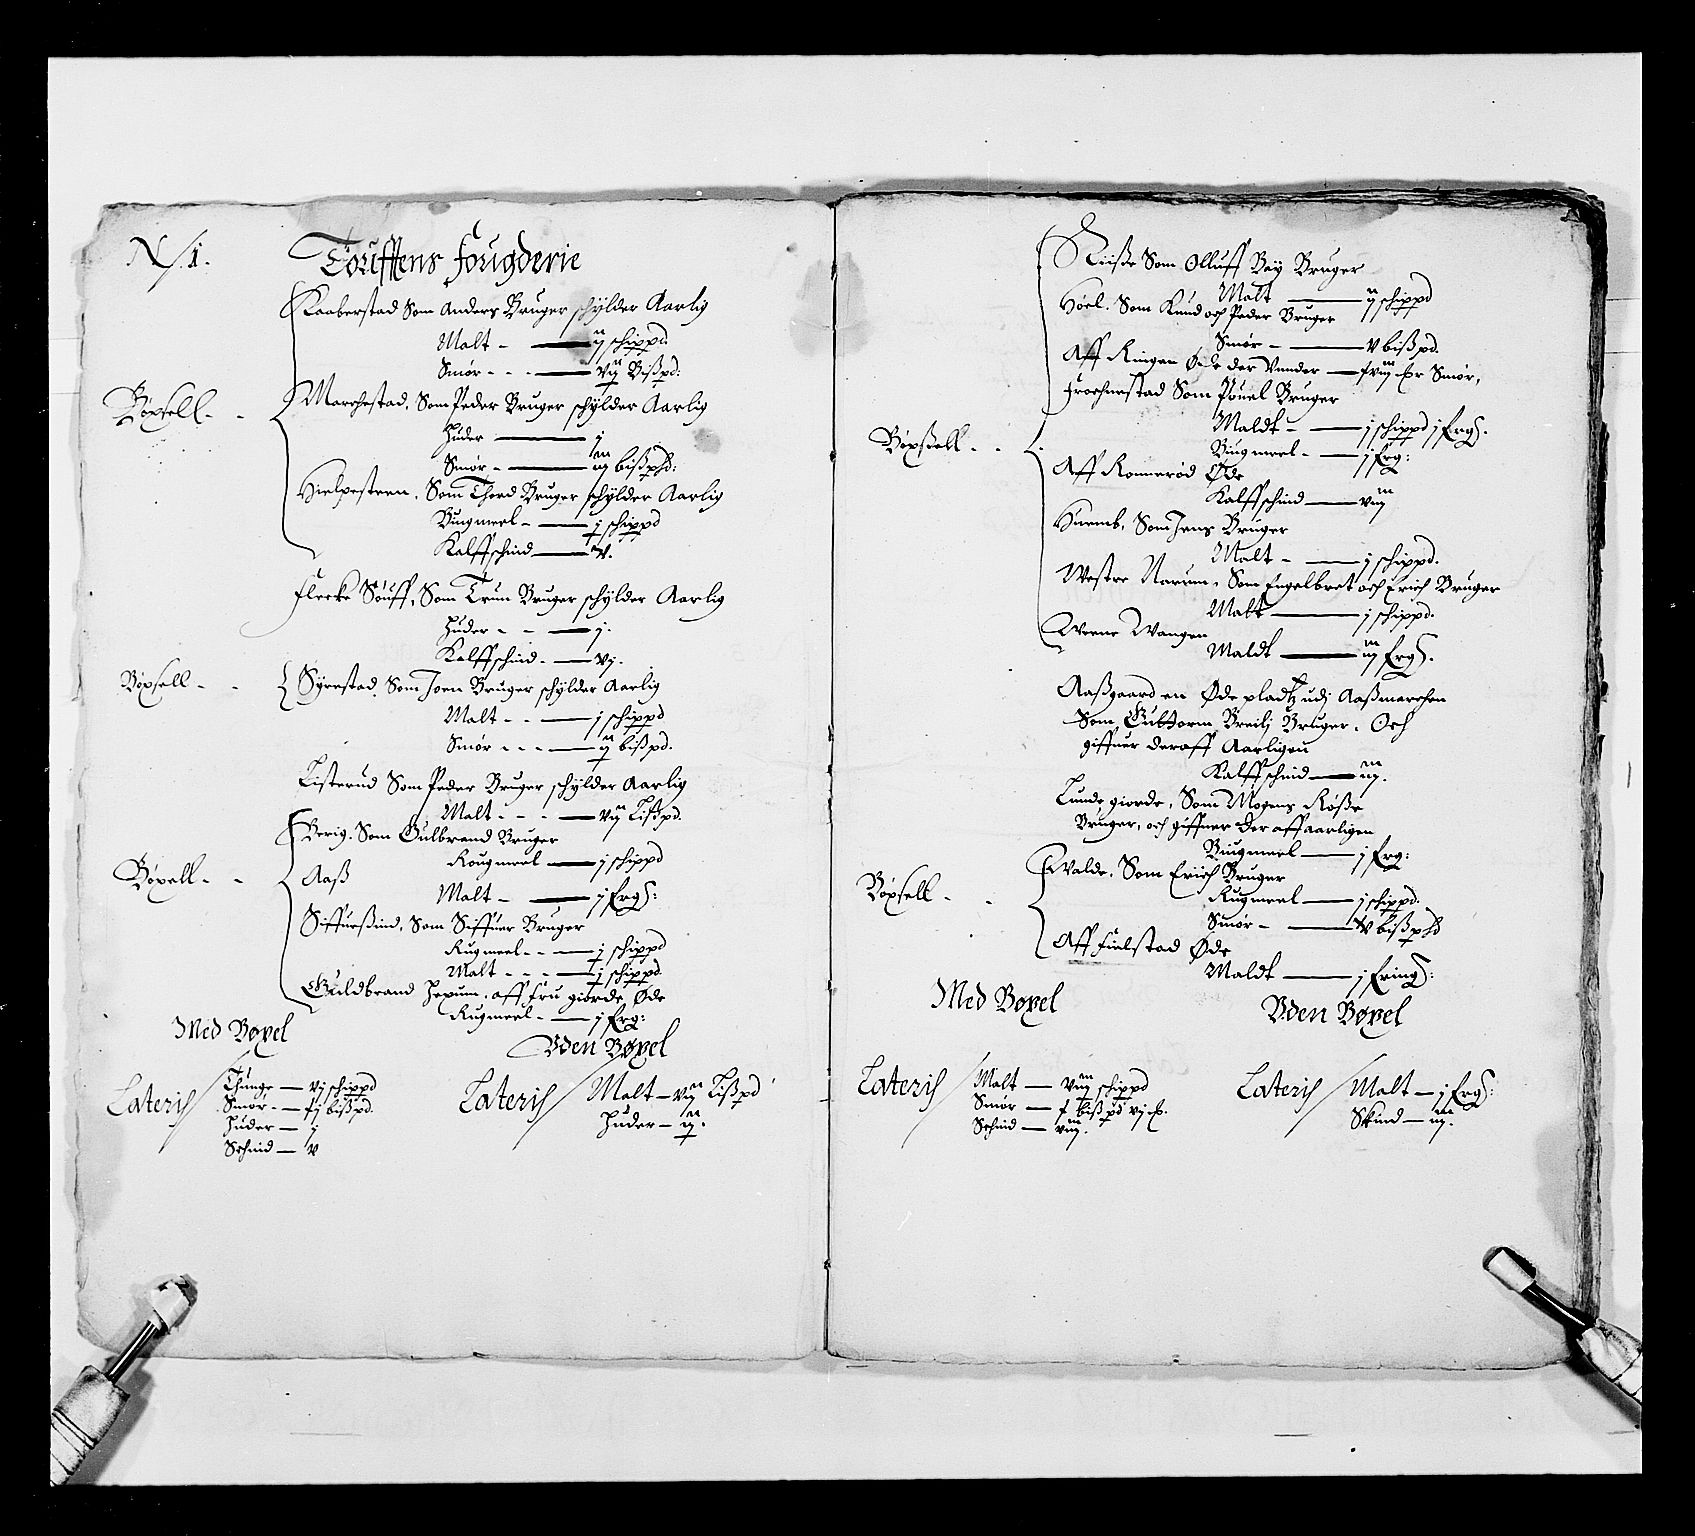 N/ 1.
Touffтens fougderie
Kaaberstad Som Anders Bruger schÿlder Aarlig
Malt - — ij schippd.
Smør - - - — vij Bißpd:
Bøxsell - -
Marchestad, Som Peder Bruger schÿlder Aarlig
Huder — j
Smør - — iij bißpd:
Hielpesteen, Som Thord Bruger schÿlder Aarlig
Biugmeel - — j schippd
Kalffschind — v.
Flecke Søuff, Som Trun Bruger schÿlder Aarlig
Huder - - — j.
Kalffschind - — vj.
Bøxsell - -
Sÿrestad, Som Joen Bruger schÿlder Aarlig
Malt - - - — j schippd
Smør - - - — ij bißpd.
Listerud Som Peder Bruger schÿlder Aarlig
Malt - - - — vij Lißpd.
Berig. Som Gulbrand Bruger
Rougmeel — j schippd
Bøxell - -
Aaß
Malt - — j Erg:
Siffuerßind, Som Siffuer Bruger
Rugmeel - - — j schippd
Malt - - - — j schippd.
Guldbrand Hexum, aff fru giorde Øde
Rugmeel - — j Erg:
Med Bøxel
Vden Bøxel
Lateris
Thunge — vj schippd
Smør - — xj bißpd.
Huder — j
Schind — v
Lateris
Malt — vij Lißpd
Huder — ij.
Riiße Som Olluff Beÿ Bruger
Malt — ij schippd
Høel. Som Knud och Peder Bruger
Smør - — v bißpd.
Aff Ringen Øde der Vnder — xviij Smør,
Frochnestad Som Pouel Bruger
Maldt - — j schippd j Erg.
Bøxßell - -
Biugmeel - — j Erg:
Aff Romerød Øde
Kalffschind — viij
Huemb, Som Jens Bruger
Malt - — j schippd.
Westre Narum, Som Engelbret och Erich Bruger
Malt — j schippd.
Weene Wangen
Maldt — iij Erg.
Aaßgaard en Øde pladtz udj Aaßmarchen
Som Guttorm Breilj Bruger. Och
giffuer deraff Aarligen
Kalffschind — iij.
Lunde giorde, Som Mogens Røße
Bruger, och giffuer der aff aarligen
Biugmeel — j Erg:
Walde, Som Erich Bruger
Bøxsell - -
Rugmeel — j schippd.
Smør - — v bißpd
Aff fielstad Øde
Maldt — j Ering:
Med Bøxel
Vden Bøxel
Lateris
Malt — viij schippd
Smør — x bißpd vj
Schind — viij.
Lateris
Malt — j Erg:
Skind — iij.